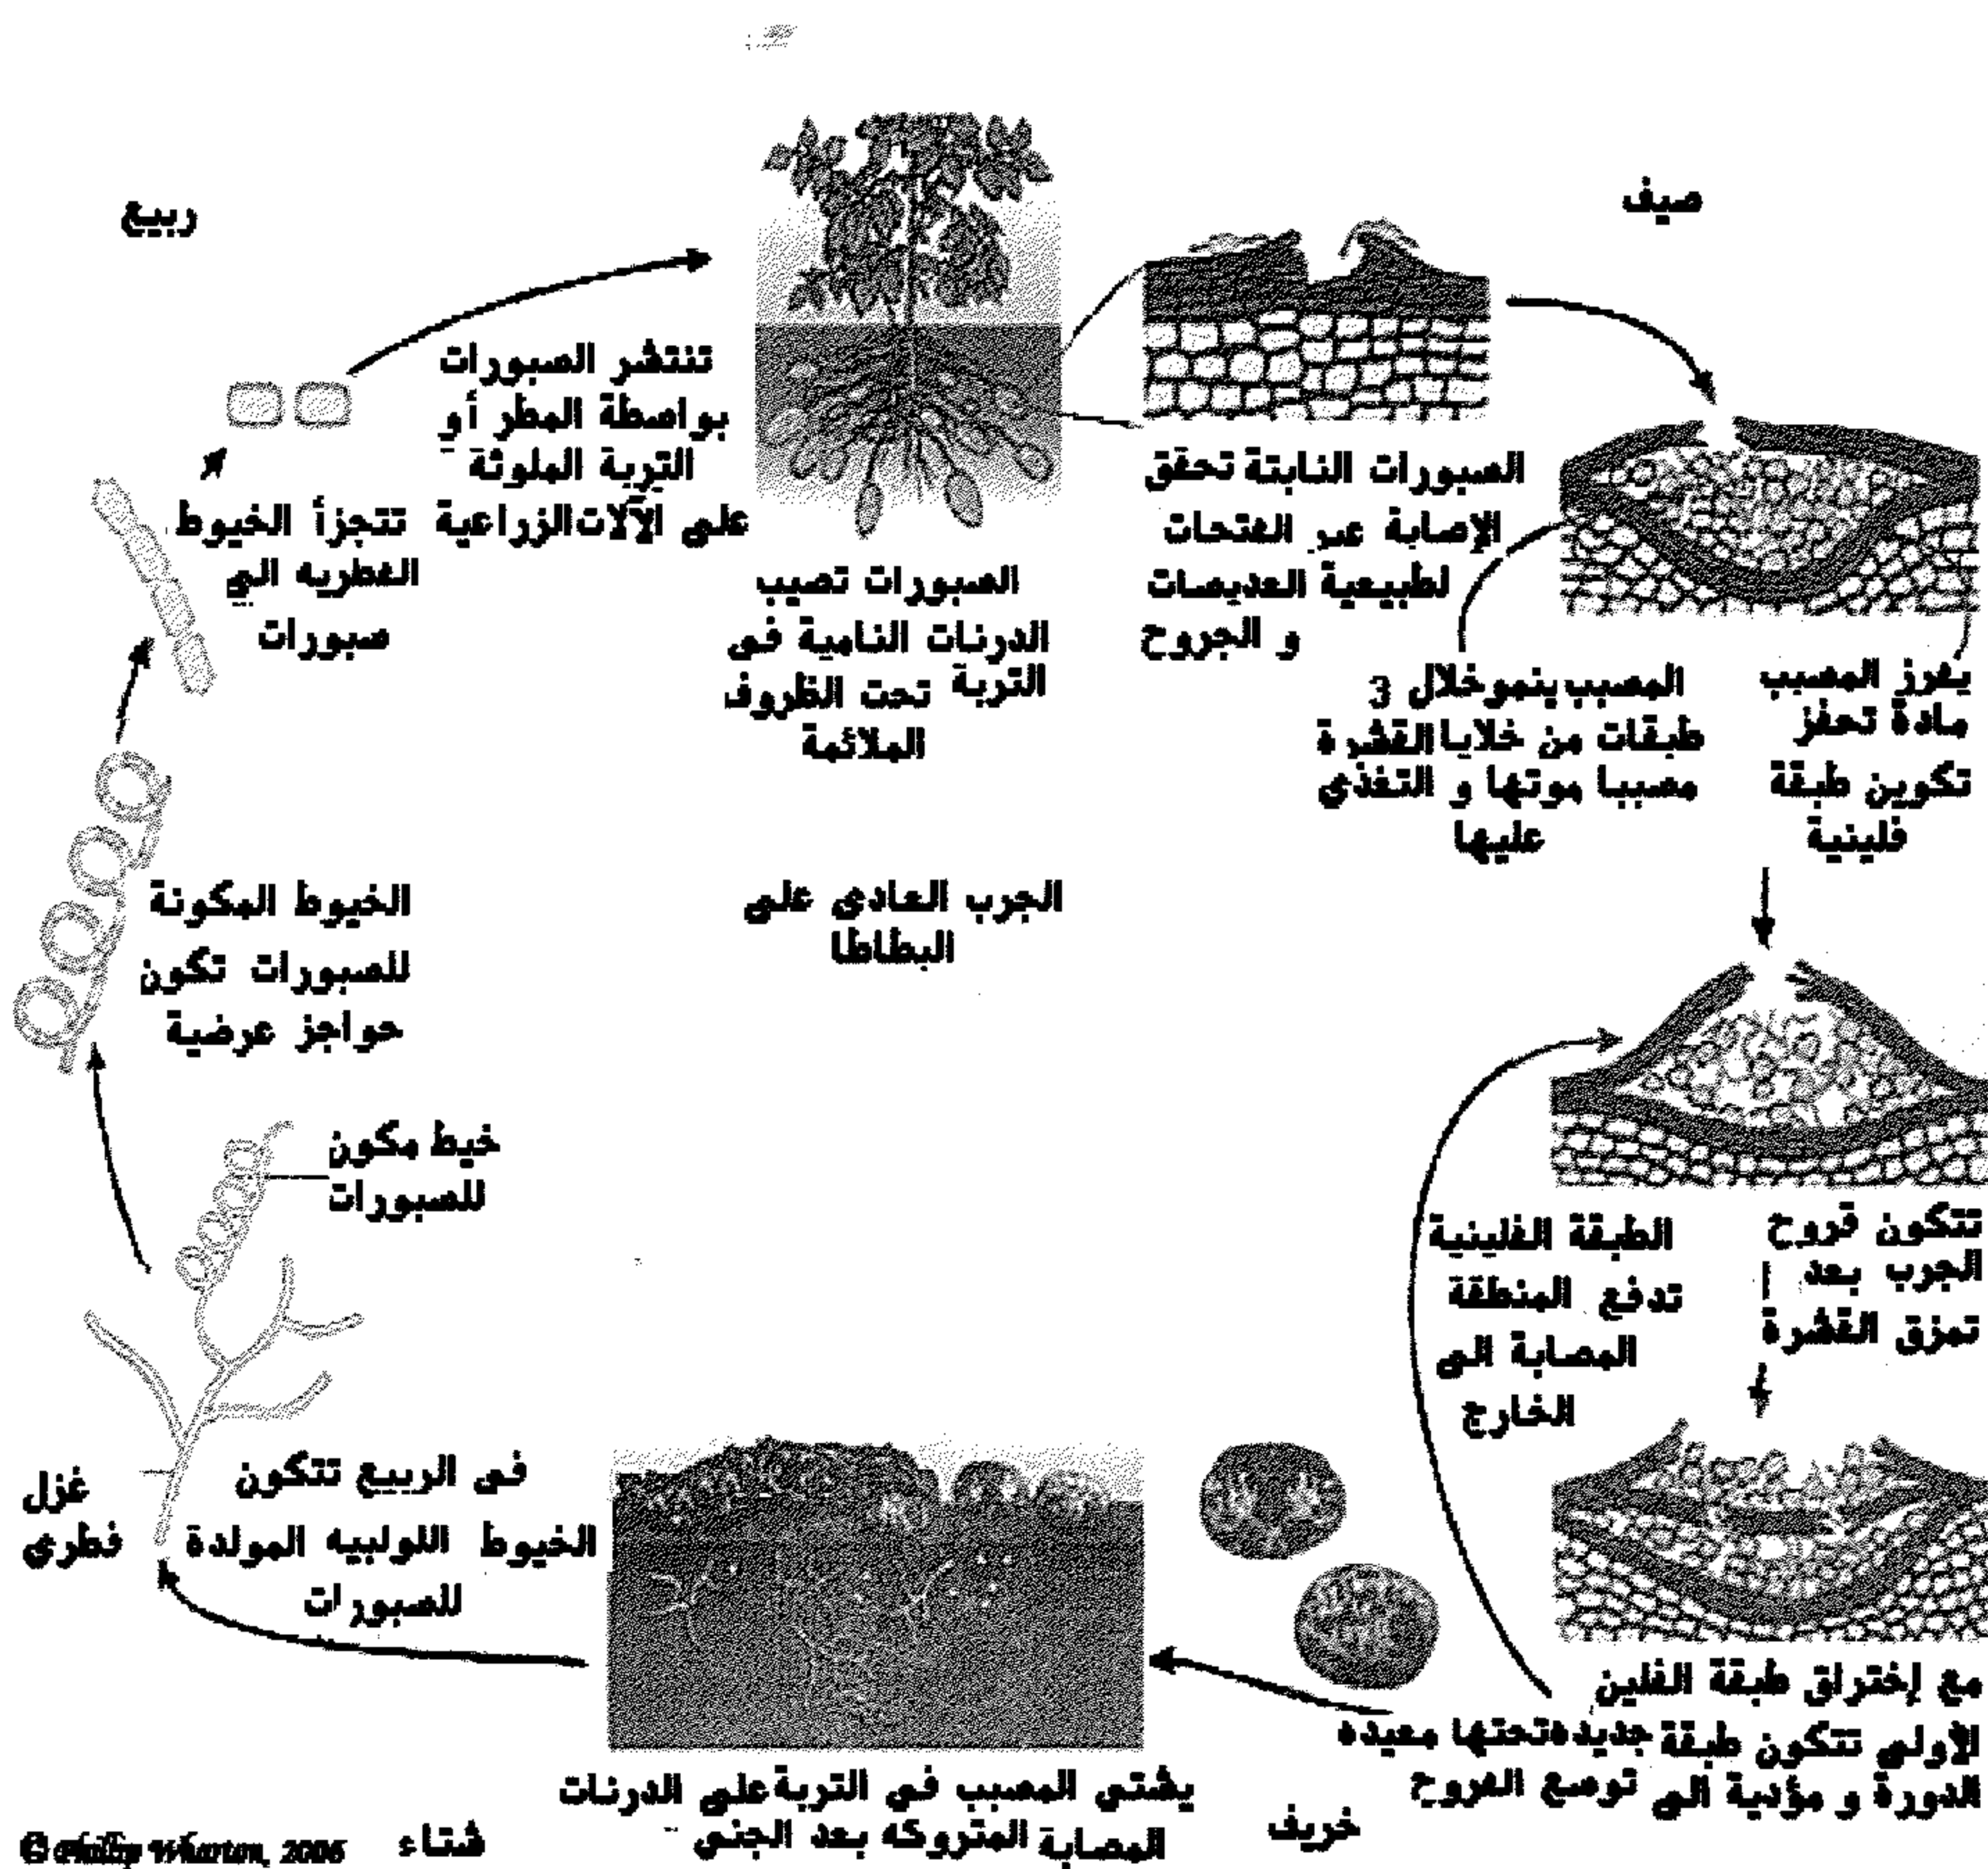 ربيع
صيف
تنتشر الصبورات
بواسطة المطر أو
التربة الملوثة
على الآلات الزراعية
تتجزأ الخيوط
الفطريه الي
صبورات
الصبورات تصيب
الدرنات النامية فى
التربة تحت الظروف
الملائمة
الصبورات النابتة تحقق
الإصابة عبر الفتحات
لطبيعية العديصات
و الجروح
المسبب ينمو خلال 3
طبقات من خلايا القشرة
مسببا موتها و التغذي
عليها
يفرز المسبب
مادة تحفز
تكوين طبقة
فلينية
الجرب العادى على
البطاطا
الخيوط المكونة
للصبورات تكون
حواجز عرضية
خيط مكون
للصبورات
الطبقة الفلينية
تدفع المنطقة
المصابة الى
الخارج
تتكون قروح
الجرب بعد
تمزق القشرة
غزل
فطرى
فى الربيع تتكون
الخيوط اللولبيه المولدة
للصبورات
مع إختراق طبقة الفلين
الأولى تتكون طبقة جديده تحتها معيده
الدورة و مؤدية الى توسع القروح
يشتي المسبب في التربة على الدرنات
المصابة المتروكه بعد الجنى
خريف
شتاء
© Phillip Wharton, 2006